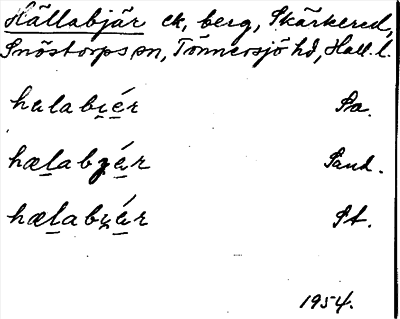 Hällabjär ek, berg, Skärkered,
Snöstorps sn, Tönnersjö hd, Hall. l.
hulabiér Sa.
hælabzár Sand.
hælabɩár St.
1954.